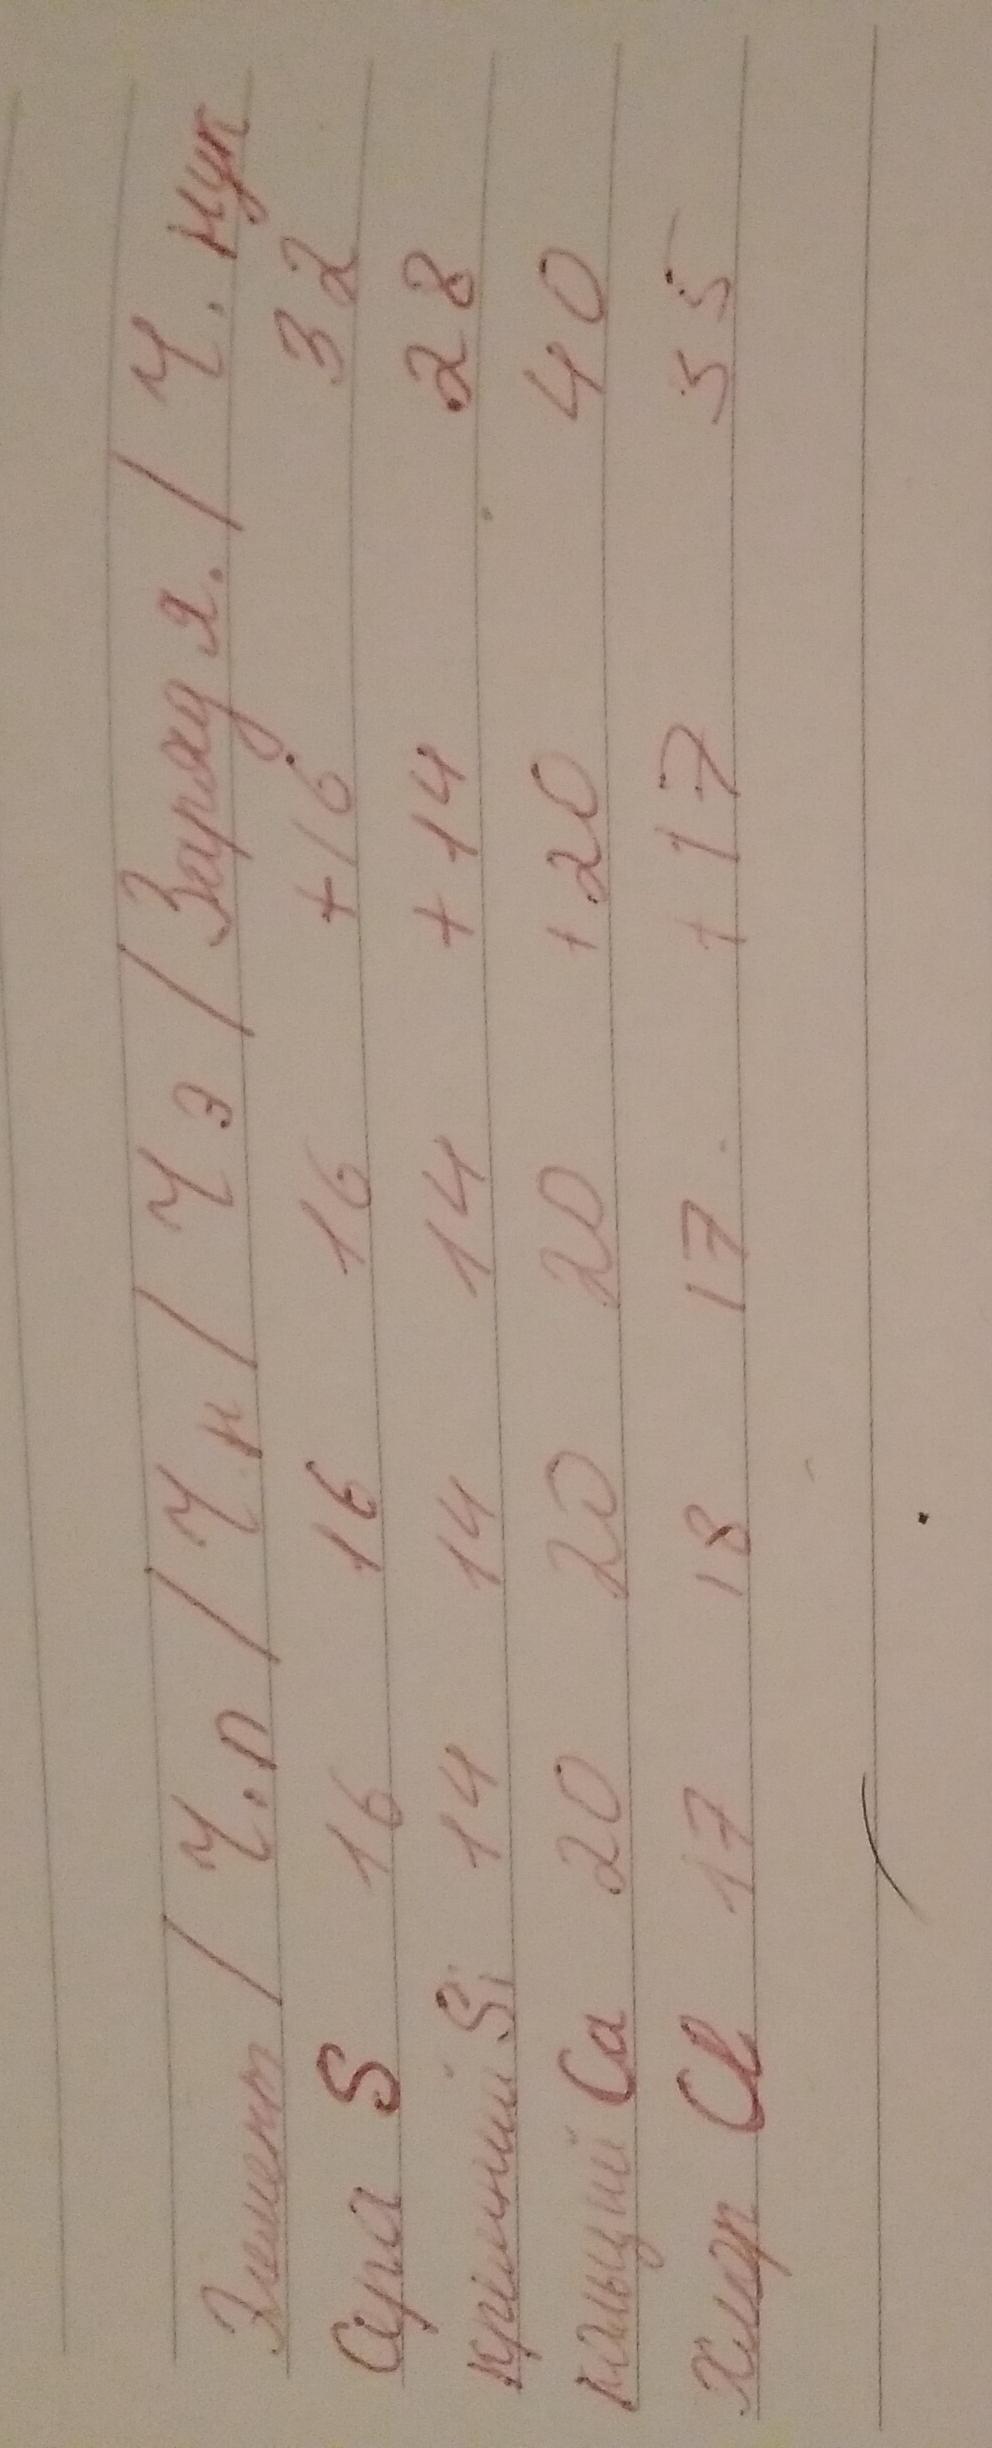 Элемент / Ч.п / Ч.н / Ч э / Заряд я. / Ч. нук
Сіра S 16 16 16 +16 32
кріміний Si 14 14 14 +14 28
кальций Ca 20 20 20 +20 40
Хлор Cl 17 18 17 +17 35